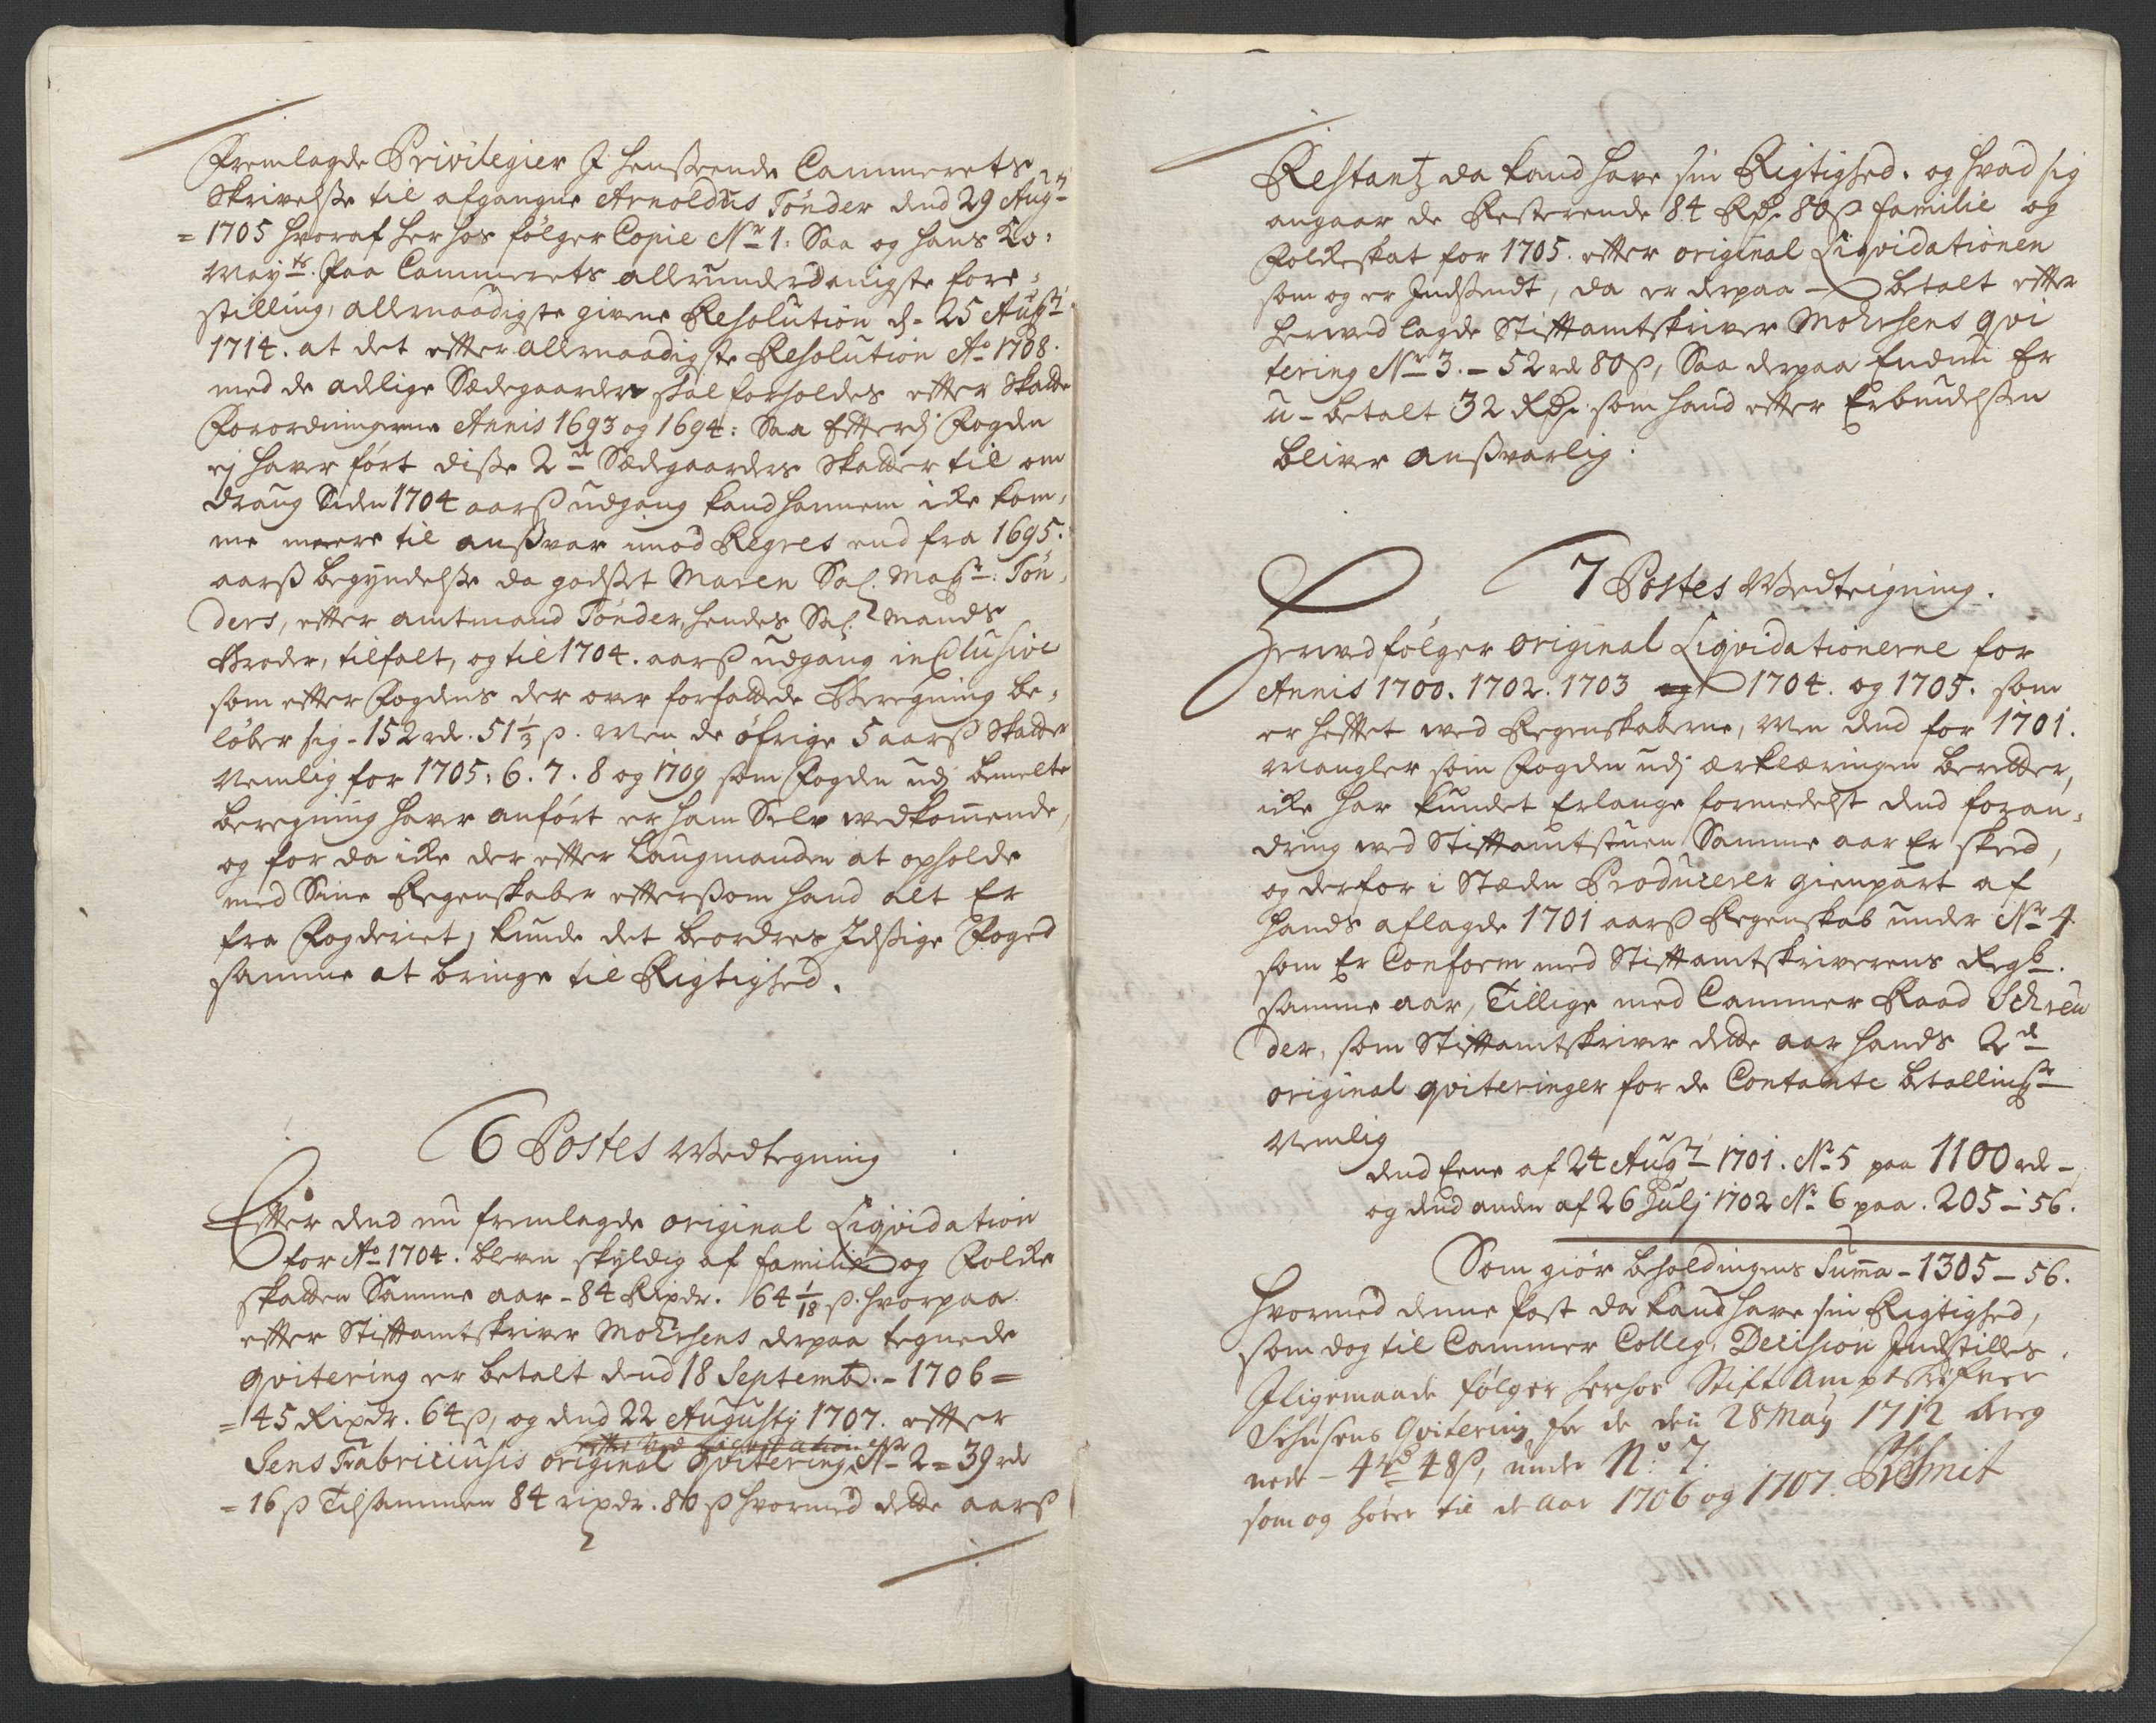 Fremlagde Privilegier I henseende Cammerets
Skrivelsse til afgangne Arnoldus Tønder dend 29 Aug:
= 1705 hvoraf her hos følger Copie Nr 1: Saa og hans Ko:
Mayts. Paa Cammerets allerunderdanigste fore=
stilling, allernaadigste givne Resolution d. 25 Augti
1714. at det effter allernaadigste Resolution Ao 1708.
med de adlige Sædegaarder skal forholdes effter Skatte
Forordningerne Annis 1693 og 1694: Saa Efterdj Fogden
ej haver ført disse 2de Sædegaarders Skatter til om
draug Siden 1704 aarss udgang kand hannem icke kom,
me meere til anssvar imod Regres end fra 1695.
aarss begyndelsse da godset Maren Sal. Magr: Tøn,
ders, effter amtmand Tønder, hendes Sal. Mands
Broder, tilfalt, og til 1704. aarss udgang inclusive
som effter Fogdens der over forfattede Beregning be=
løber sig - 152 rdr. 51 1/3 ß. Men de øfrige 5 aarss Skatter
Nemlig for 1705: 6. 7. 8 og 1709 som Fogden udj bemelte
beregning haver anført er ham Selv vedkommende,
og for da icke der effter Laugmanden at opholde
med Sine Regenskaber effterssom hand alt Er
fra Fogderiet, kunde det beordres Idssige Foged
samme at bringe til Rigtighed.
6 Postes Vedtegning
Effter dend nu fremlagde original Liqvidation
for Ao 1704. bleven skyldig af familie og Folke
skatten Samme aar - 84 Rixdr. 64 1/18 ß. hvorpaa
effter Stifftamtskriver Mohrsens derpaa tegnede
qvitering er betalt dend 18 Septembr. - 1706 =
= 45 Rixdr. 64 ß, og dend 22 Augustj 1707. effter
Jens Fabriciusis original Qvitering Nr 2 = 39 rdr
= 16 ß Tilsammen 84 rixdr. 80 ß hvormed dette aarss
Restantz da kand have sin Rigtighed. og hvad sig
angaar de Resterende 84 Rdr. 80 ß familie og
Folkeskat for 1705. effter original Liqvidationen
som og er Indsendt, da er derpaa - betalt effter
herved lagde Stifftamtskriver Mohrsens qvi
tering Nr 3. - 52 rdr 80 ß, Saa derpaa Endnu Er
u-betalt 32 Rdr. som hand effter Erbudelssen
bliver anssvarlig.
7 Postes Vedteigning.
Herved følger original Liqvidationerne for
Annis 1700. 1702. 1703 og 1704. og 1705. som
er hefftet ved Regenskaberne, Men dend for 1701.
mangler som Fogden udj ærklæringen beretter,
icke har kundet Erlange formedelst dend foran,
dring ved Stifftamtstuen Samme aar Er skeed,
og derfor i Stæden Producerer gienpart af
hands aflagde 1701 aarss Regenskab under Nr 4.
som Er Conform med Stifftamtskriverens Regsk.
samme aar, Tillige med Cammer Raad Schreu
der, som Stifftamtskriver dette aar hands 2de
original qviteringer for de Contante betallingr
Nemlig
dend Eene af 24 Augti 1701. No 5 paa 1100 rdr -
og dend anden af 26 Julj 1702 No 6 paa. 205 - 56.
Som giør beholdingens Summa - 1305 - 56.
hvormed denne Post da kand have sin Rigtighed,
som dog til Cammer Colleg. Decision Indstilles.
Iligemaade følger herhos Stift Ampt skrifver
Schusens Qvitering for de den 28 May 1712
nede - 4 rd 48 ß, under No: 7.
som og hører til de Aar 1706 og 1707.